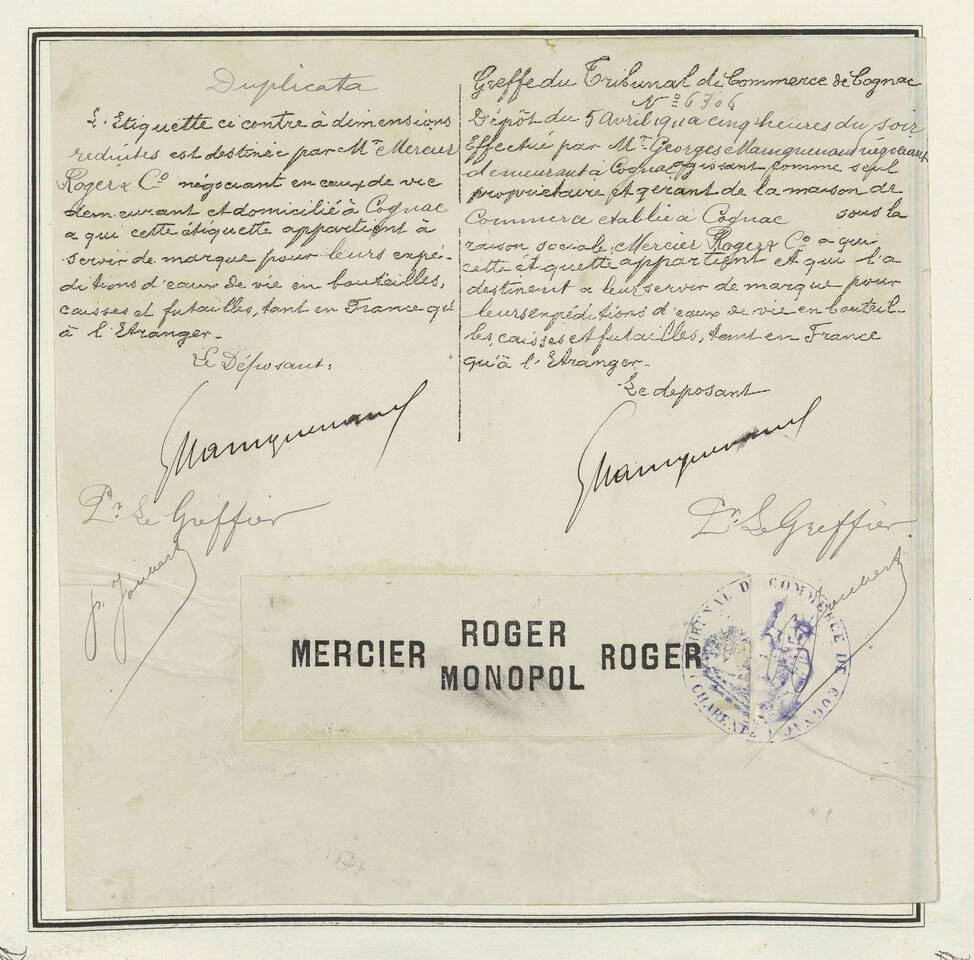 Duplicata
L'Etiquette ci contre à dimensions
reduites est destinée par Mr Mercier
Roger & Co négociant en eaux de vie
demeurant et domicilié à Cognac
a qui cette étiquette appartient à
servir de marque pour leurs expé-
ditions d'eaux de vie en bouteilles,
caisses et futailles, tant en France qu'
à l'Etranger.
Le Déposant:
Pr Le Greffier
p. Joubert
Greffe du Tribunal de Commerce de Cognac
No 6306
Dépôt du 5 Avril à cinq heures du soir
Effectué par Mr Georges négociant
demeurant à Cognac, gissant comme seul
propriétaire et gérant de la maison de
Commerce etablie à Cognac sous la
raison sociale, Mercier Roger & Co a qui
cette étiquette appartient et qui l'a
destinent a leur servir de marque pour
leurs expéditions d'eaux de vie en bouteil-
les, caisses et futailles, tant en France
qu'à l'Etranger.
Le deposant
Pr Le Greffier
Joubert
MERCIER ROGER MONOPOL ROGER
TRIBUNAL DE COMMERCE DE COGNAC
CHARENTE